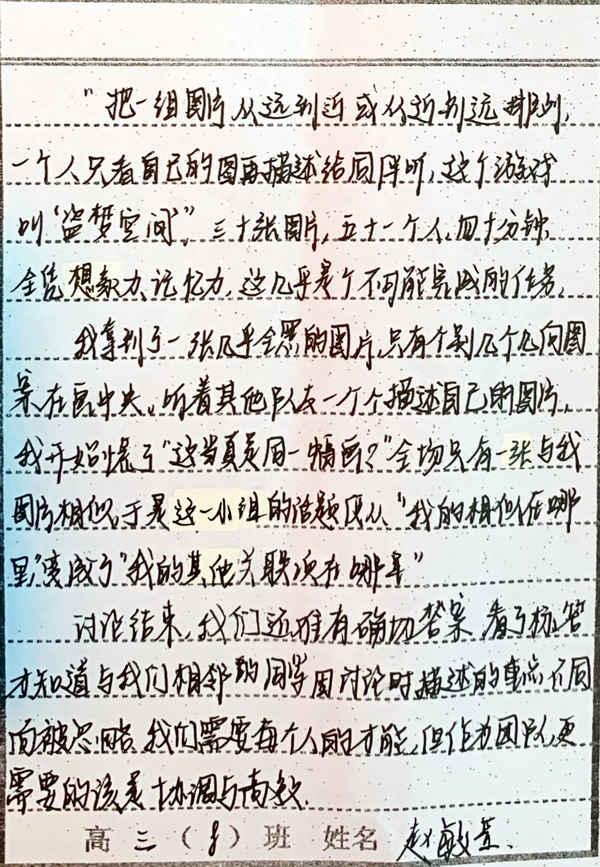 "把一组图片从远到近或从近到远排列,
一个人只看自己的图再描述给同伴听,这个游戏
叫"盗梦空间",三十张图片,五十一个人,四十分钟,
全凭想象力、记忆力,这几乎是个不可能完成的任务。
我拿到了一张几乎全黑的图片,只有个别几个几何图
案在画中央。听着其他队友一个个描述自己的图片,
我开始慌了"这当真是同一幅画?"全场只有一张与我
图片相似,于是这一小组的话题便从"我的相似在哪
里"变成了"我的其他关联项在哪里"
讨论结束,我们还难有确切答案,看了标答
才知道与我们相邻的同学因讨论时描述的重点不同
而被忽略。我们需要每个人的才能,但作为团队,更
需要的该是协调与
高三(8)班 姓名 赵敏